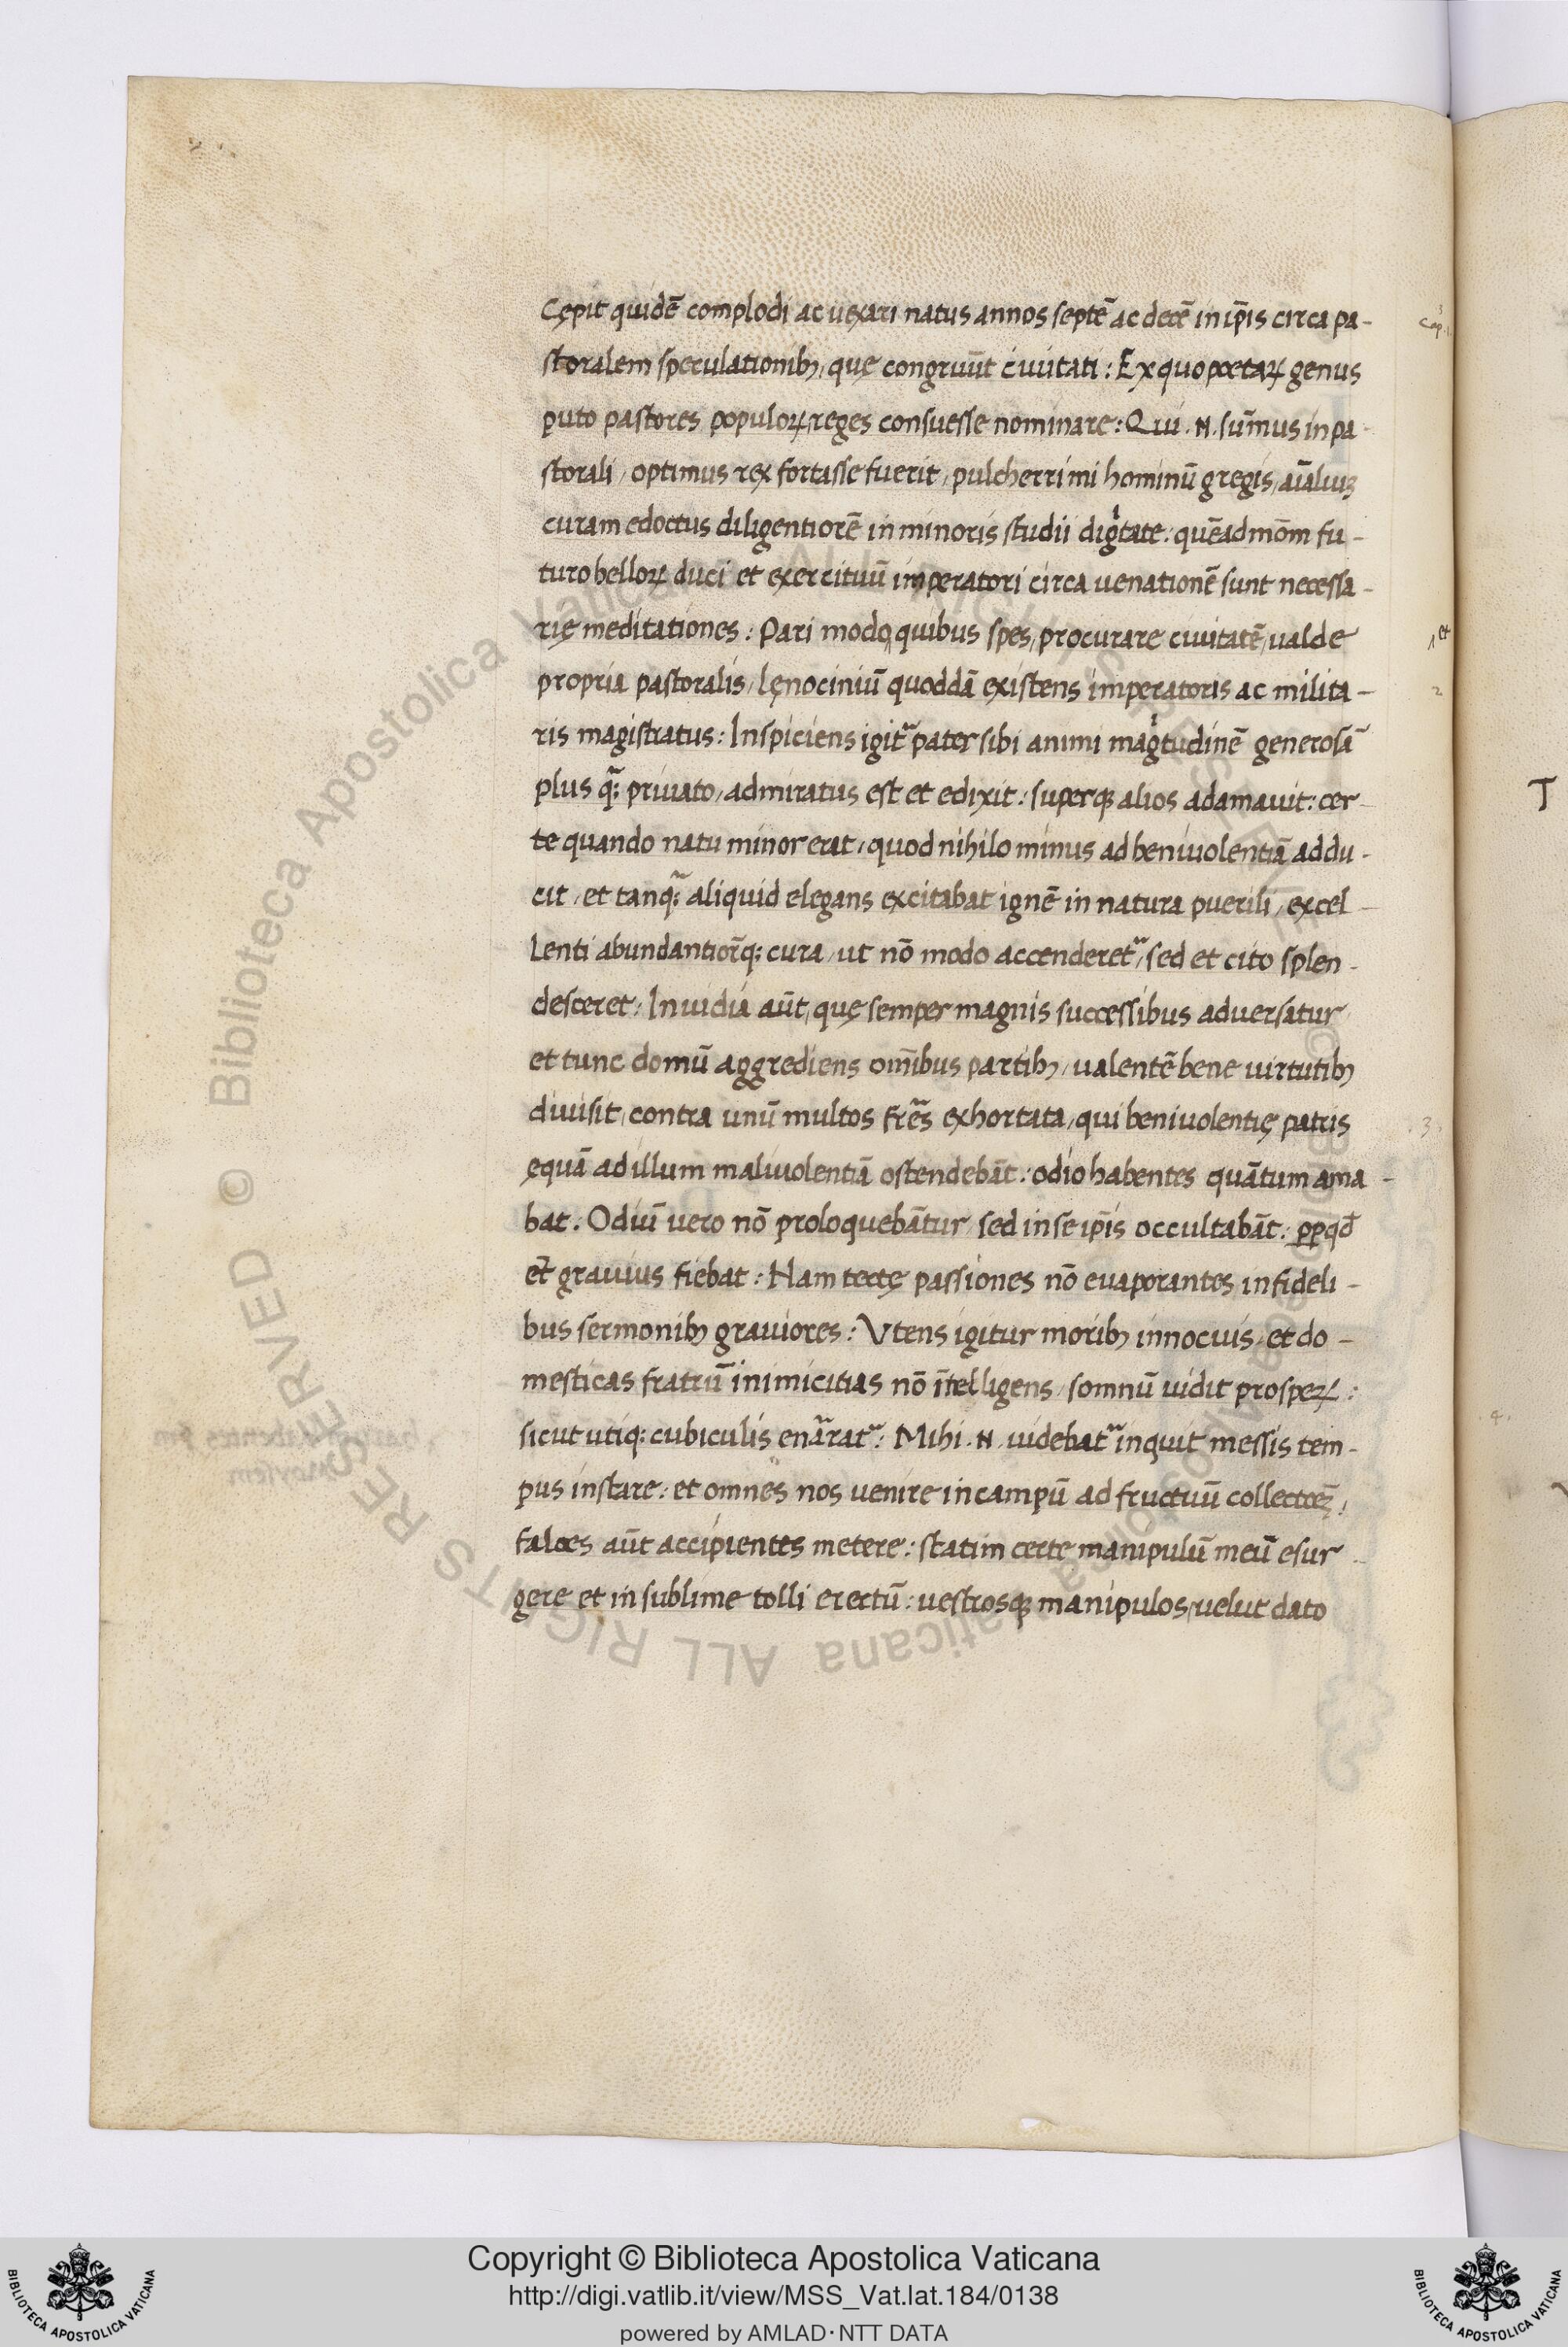 Cępit quidē complodi ac uexari natus annos septē ac decē in ip̄is circa pa-
storalem speculationibꝫ, quę congruūt ciuitati: Ex quo poetaꝝ genus
puto pastores populoꝝ reges consuesse nominare: Qui .N. sum̄us in pa-
storali, optimus rex fortasse fuerit, pulcherrimi hominū gregis, aīaliuꝫ
curam edoctus diligentiorē in minoris studii dig̍tate: quēadmōm fu-
turo belloꝝ duci et exercituū imperatori circa uenationē sunt necessa-
rię meditationes: Pari modo quibus spes, procurare ciuitatē, ualde
propria pastoralis, lęnociniū quoddā existens imperatoris ac milita-
ris magistratus: Inspiciens igit᷑ pater sibi animi mag̍tudinē generosā
plus q̄ꝫ priuato, admiratus est et edixit: superqꝫ alios adamauit: cer-
te quando natu minor erat, quod nihilo minus ad beniuolentiā addu-
cit, et tanq̄ꝫ aliquid elegans excitabat ignē in natura puerili, excel-
lenti abundantiōrqꝫ cura, ut nō modo accenderet᷑, sed et cito splen-
desceret: Inuidia aūt, quę semper magnis successibus aduersatur
et tunc domū aggrediens om̄ibus partibꝫ, ualentē bene uirtutibꝫ
diuisit, contra unū multos fr̄es exhortata, qui beniuolentię patris
ęquā ad illum maliuolentiā ostendebāt: odio habentes quātum ama-
bat: Odiū uero nō proloquebātur sed in se ip̄is occultabāt: ꝓpqđ
et̄ grauius fiebat: Nam tectę passiones nō euaporantes infideli-
bus sermonibꝫ grauiores: Vtens igitur moribꝫ innocuis, et do-
mesticas fratrū inimicitias nō ītelligens, somnū uidit prospeꝝ:
sicut utiqꝫ cubiculis enārrat᷑: Mihi .N. uidebat᷑ inquit messis tem-
pus instare: et omnes nos uenire in campū ad fructuū collectoeꝫ:
falces aūt accipientes metere: statim certe manipulū meū esur-
gere et in sublime tolli erectū: uestrosqꝫ manipulos, uelut dato
Cap.
et
2
3.
4.
T
Copyright © Biblioteca Apostolica Vaticana
http://digi.vatlib.it/view/MSS_Vat.lat.184/0138
powered by AMLAD·NTT DATA
BIBLIOTECA APOSTOLICA VATICANA
BIBLIOTECA APOSTOLICA VATICANA
© Biblioteca Apostolica Vaticana ALL RIGHTS RESERVED